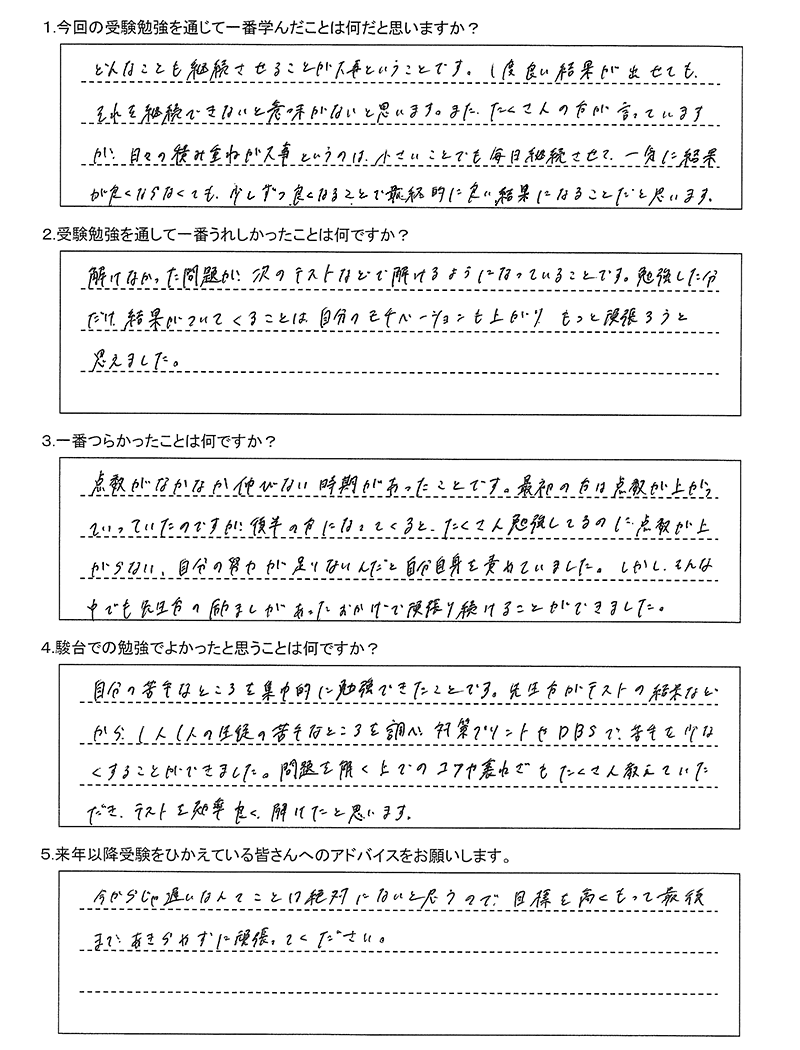 1.今回の受験勉強を通じて一番学んだことは何だと思いますか？
どんなことも継続させることが大事ということです。1度良い結果が出せても、
それを継続できないと意味がないと思います。また、たくさんの方が言っています
が、日々の積み重ねが大事というのは、小さいことでも毎日継続させて、一気に結果
が良くならなくても、少しずつ良くなることで最終的に良い結果になることだと思います。
2.受験勉強を通して一番うれしかったことは何ですか？
解けなかった問題が、次のテストなどで解けるようになっていることです。勉強した分
だけ、結果がついてくることは、自分のモチベーションも上がり、もっと頑張ろうと
思えました。
3.一番つらかったことは何ですか？
点数がなかなか伸びない時期があったことです。最初の方は点数が上がっ
ていっていたのですが、後半の方になってくると、たくさん勉強してるのに、点数が上
がらない、自分の努力が足りないんだと自分自身を責めていました。しかし、そんな
中でも先生方の励ましがあったおかげで頑張り続けることができました。
4.駿台での勉強でよかったと思うことは何ですか？
自分の苦手なところを集中的に勉強できたことです。先生方がテストの結果など
から、1人1人の生徒の苦手なところを調べ、対策プリントやDBSで、苦手を少な
くすることができました。問題を解く上でのコツや裏わざもたくさん教えていた
だき、テストを効率良く、解けたと思います。
5.来年以降受験をひかえている皆さんへのアドバイスをお願いします。
今からじゃ遅いなんてことは絶対にないと思うので、目標を高くもって最後
まで、あきらめずに頑張ってください。